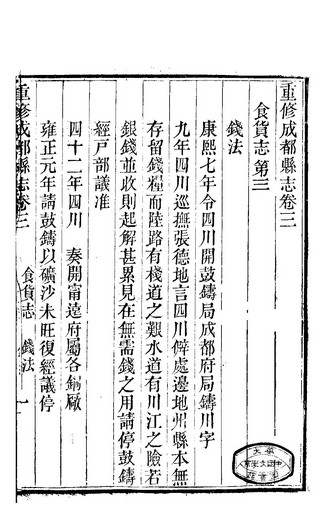 重修成都縣志卷三
食貨志第三
錢法
康熙七年令四川開鼓鑄局成都府局鑄川字
九年四川巡撫張德地言四川僻處邊地州縣本無
存留錢糧而陸路有棧道之艱水道有川江之險若
銀錢並收則起解甚累見在無需錢之用請停鼓鑄
經戶部議准
四十二年四川 奏開甯遠府屬各銅廠
雍正元年請鼓鑄以礦沙未旺復經議停
重修成都縣志卷三 食貨志 錢法 一